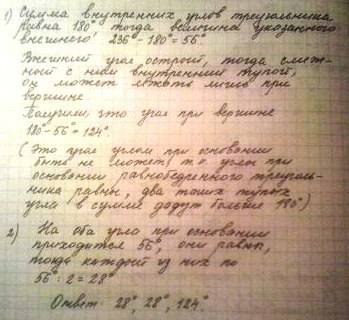 1) Сумма внутренних углов треугольника
равна 180°, тогда величина указанного
внешнего: 236°-180°=56°
Внешний угол острый, тогда смеж-
ный с ним внутренний тупой,
он может лежать лишь при
вершине
Получили, это угол при вершине
180-56°=124°.
(Это угол углом при основании
быть не может, т.к. углы при
основании равнобедренного треуголь-
ника равны, два таких тупых
угла в сумме дадут больше 180°)
2) На оба угла при основании
приходится 56°, они равны,
тогда каждый из них по
56°:2=28°
Ответ: 28°, 28°, 124°